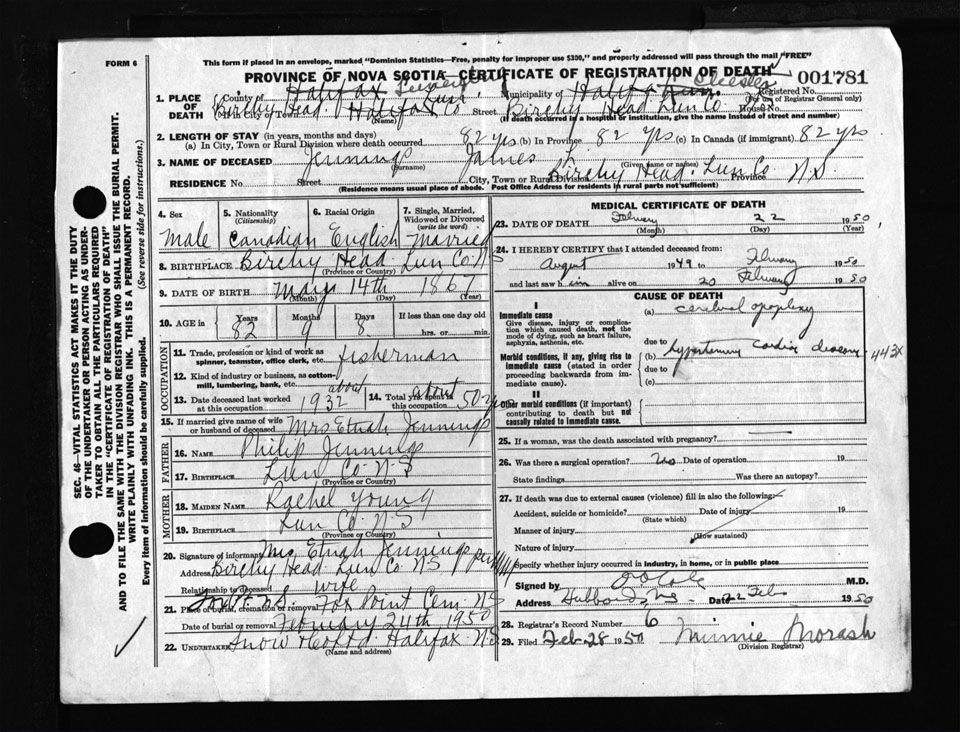 FORM 6
This form if placed in an envelope, marked "Dominion Statistics—Free, penalty for improper use $300," and properly addressed will pass through the mail "FREE"
PROVINCE OF NOVA SCOTIA CERTIFICATE OF REGISTRATION OF DEATH
001781
1. PLACE OF DEATH
County of Halifax Lun. Municipality of Halifax Lun. Chester Registered No.
(For use of Registrar General only)
Birchy Head Halifax Co Street Birchy Head Lun Co House No.
If in City or Town (Name) (If death occurred in a hospital or institution, give the name instead of street and number)
2. LENGTH OF STAY (in years, months and days)
(a) In City, Town or Rural Division where death occurred 82 yrs (b) In Province 82 yrs (c) In Canada (if immigrant) 82 yrs
3. NAME OF DECEASED Jennings James
(Surname) (Given name or names)
RESIDENCE No Street City, Town or Rural Division Birchy Head. Lun Co Province N.S.
(Residence means usual place of abode. Post Office Address for residents in rural parts not sufficient)
4. Sex Male
5. Nationality (Citizenship) Canadian
6. Racial Origin English
7. Single, Married, Widowed or Divorced (write the word) Married
8. BIRTHPLACE Birchy Head Lun Co. N.S
(Province or Country)
9. DATE OF BIRTH May 14th 1867
(Month) (Day) (Year)
10. AGE in Years Months Days If less than one day old
82 9 8 hrs. or min.
OCCUPATION
11. Trade, profession or kind of work as spinner, teamster, office clerk, etc. fisherman
12. Kind of industry or business, as cotton-mill, lumbering, bank, etc.
13. Date deceased last worked at this occupation about 1932
14. Total yrs. spent in this occupation about 50 yrs
15. If married give name of wife or husband of deceased Mrs Etnah Jennings
FATHER
16. NAME Philip Jennings
17. BIRTHPLACE Lun Co. N.S
(Province or Country)
MOTHER
18. MAIDEN NAME Rachel Young
19. BIRTHPLACE Lun Co. N.S
(Province or Country)
20. Signature of informant Mrs. Etnah Jennings per
Address Birchy Head Lun Co N.S
Relationship to deceased wife
21. Place of burial, cremation or removal Fox Point Cem. N.S
Date of burial or removal February 24th 1950
22. UNDERTAKER Snow & Co Ltd Halifax N.S
(Name and address)
MEDICAL CERTIFICATE OF DEATH
23. DATE OF DEATH February 22 1950
(Month) (Day) (Year)
24. I HEREBY CERTIFY that I attended deceased from:
August 1949 to February 1950
and last saw him alive on 20 February 1950
CAUSE OF DEATH
I
Immediate cause
Give disease, injury or complication which caused death, not the mode of dying, such as heart failure, asphyxia, asthenia, etc.
(a) cerebral apoplexy
due to
Morbid conditions, if any, giving rise to immediate cause (stated in order proceeding backwards from immediate cause).
(b) hypertensive cardiac disease 443X
due to
(c)
II
Other morbid conditions (if important) contributing to death but not causally related to immediate cause.
25. If a woman, was the death associated with pregnancy?
26. Was there a surgical operation? No Date of operation 19
State findings Was there an autopsy?
27. If death was due to external causes (violence) fill in also the following:
Accident, suicide or homicide? Date of injury 19
(State which)
Manner of injury
(How sustained)
Nature of injury
Specify whether injury occurred in industry, in home, or in public place
Signed by M.D.
Address Hubbards N.S. Date 22 Feb 1950
28. Registrar's Record Number 6
29. Filed Feb-28 1950 Minnie Morash
(Division Registrar)
SEC. 46—VITAL STATISTICS ACT MAKES IT THE DUTY
OF THE UNDERTAKER OR PERSON ACTING AS UNDER-
TAKER TO OBTAIN ALL THE PARTICULARS REQUIRED
IN THE "CERTIFICATE OF REGISTRATION OF DEATH"
AND TO FILE THE SAME WITH THE DIVISION REGISTRAR WHO SHALL ISSUE THE BURIAL PERMIT.
WRITE PLAINLY WITH UNFADING INK. THIS IS A PERMANENT RECORD.
Every item of information should be carefully supplied. (See reverse side for instructions.)